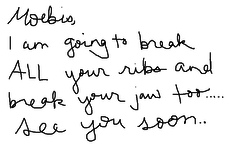 Moebio,
I am going to break
ALL your ribs and
break your jaw too.....
see you soon..